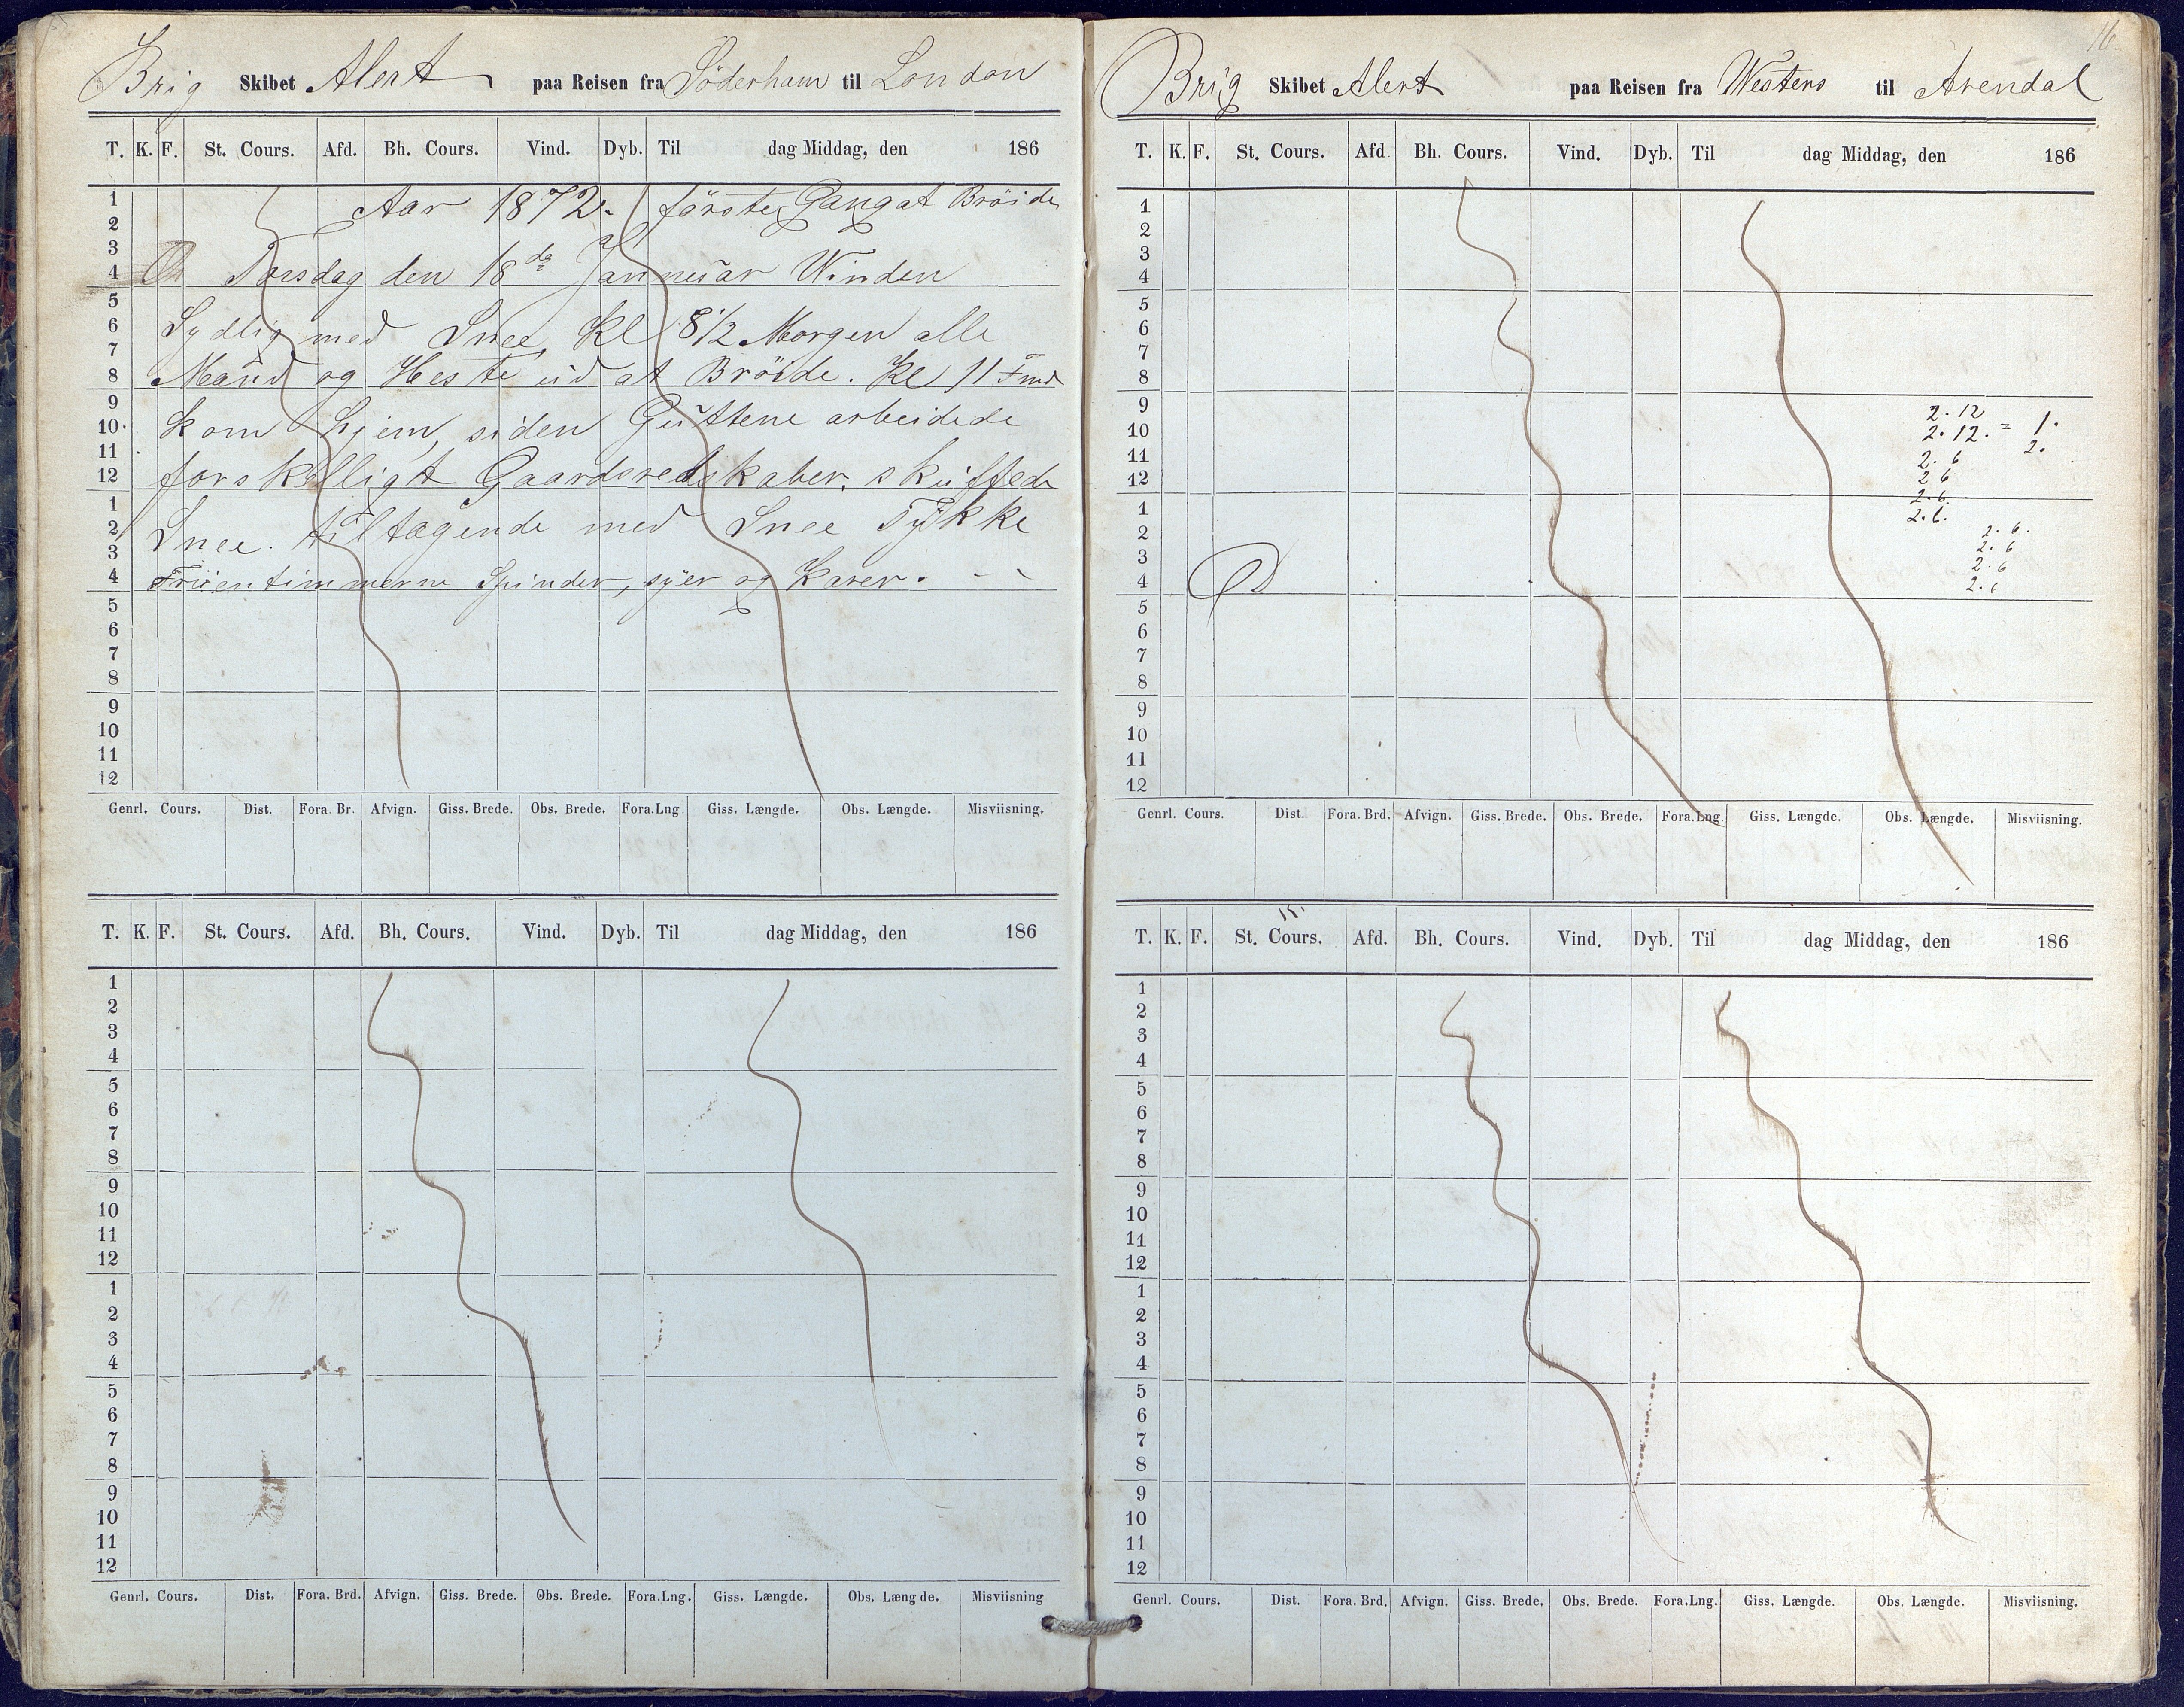 Brig Skibet Alert paa Reisen fra Söderham til London
T. K. F. St. Cours. Afd. Bh. Cours. Vind. Dyb. Til dag Middag, den 186
Aar 1872. förste Gang at Bröide
1
2
3
4
Torsdag den 18de Jannuar Winden
5
6
Sydlig med Snee Kl 8 1/2 Morgen alle
7
8
Mand og Heste ud at Bröide. Kl 11 Fmd
9
10
kom hjem, siden Guttene arbeidede
11
12
forskelligt Gaardsredskaber, skuffede
1
2
Snee. tiltagende med Snee Tykke
3
4
Fruentimmerne Spinder, syer og Karer.
5
6
7
8
9
10
11
12
Genrl. Cours. Dist. Fora. Br. Afvign. Giss. Brede. Obs. Brede. Fora.Lng Giss. Længde. Obs. Længde. Misviisning.
T. K. F. St. Cours. Afd. Bh. Cours. Vind. Dyb. Til dag Middag, den 186
1
2
3
4
5
6
7
8
9
10
11
12
1
2
3
4
5
6
7
8
9
10
11
12
Genrl. Cours. Dist. Fora. Brd. Afvign. Giss. Brede. Obs. Brede. Fora.Lng. Giss. Længde. Obs. Længde. Misviisning
16.
Brig Skibet Alert paa Reisen fra Westero til Arendal
T. K. F. St. Cours. Afd Bh. Cours. Vind. Dyb. Til dag Middag, den 186
1
2
3
4
5
6
7
8
9 2. 12
10 2. 12. = 1.
2.
11 2. 6
12 2 6
2. 6.
1 2. 6.
2 2. 6.
3 2. 6
2. 6
4 2. 6
5
6
7
8
9
10
11
12
Genrl. Cours. Dist. Fora. Brd. Afvign. Giss. Brede. Obs. Brede. Fora.Lng. Giss. Længde. Obs. Længde. Misviisning.
T. K. F. St. Cours. Afd. Bh. Cours. Vind. Dyb. Til dag Middag, den 186
1
2
3
4
5
6
7
8
9
10
11
12
1
2
3
4
5
6
7
8
9
10
11
12
Genrl. Cours. Dist. Fora. Brd. Afvign. Giss. Brede. Obs. Brede. Fora.Lng. Giss. Længde. Obs. Længde. Misviisning.